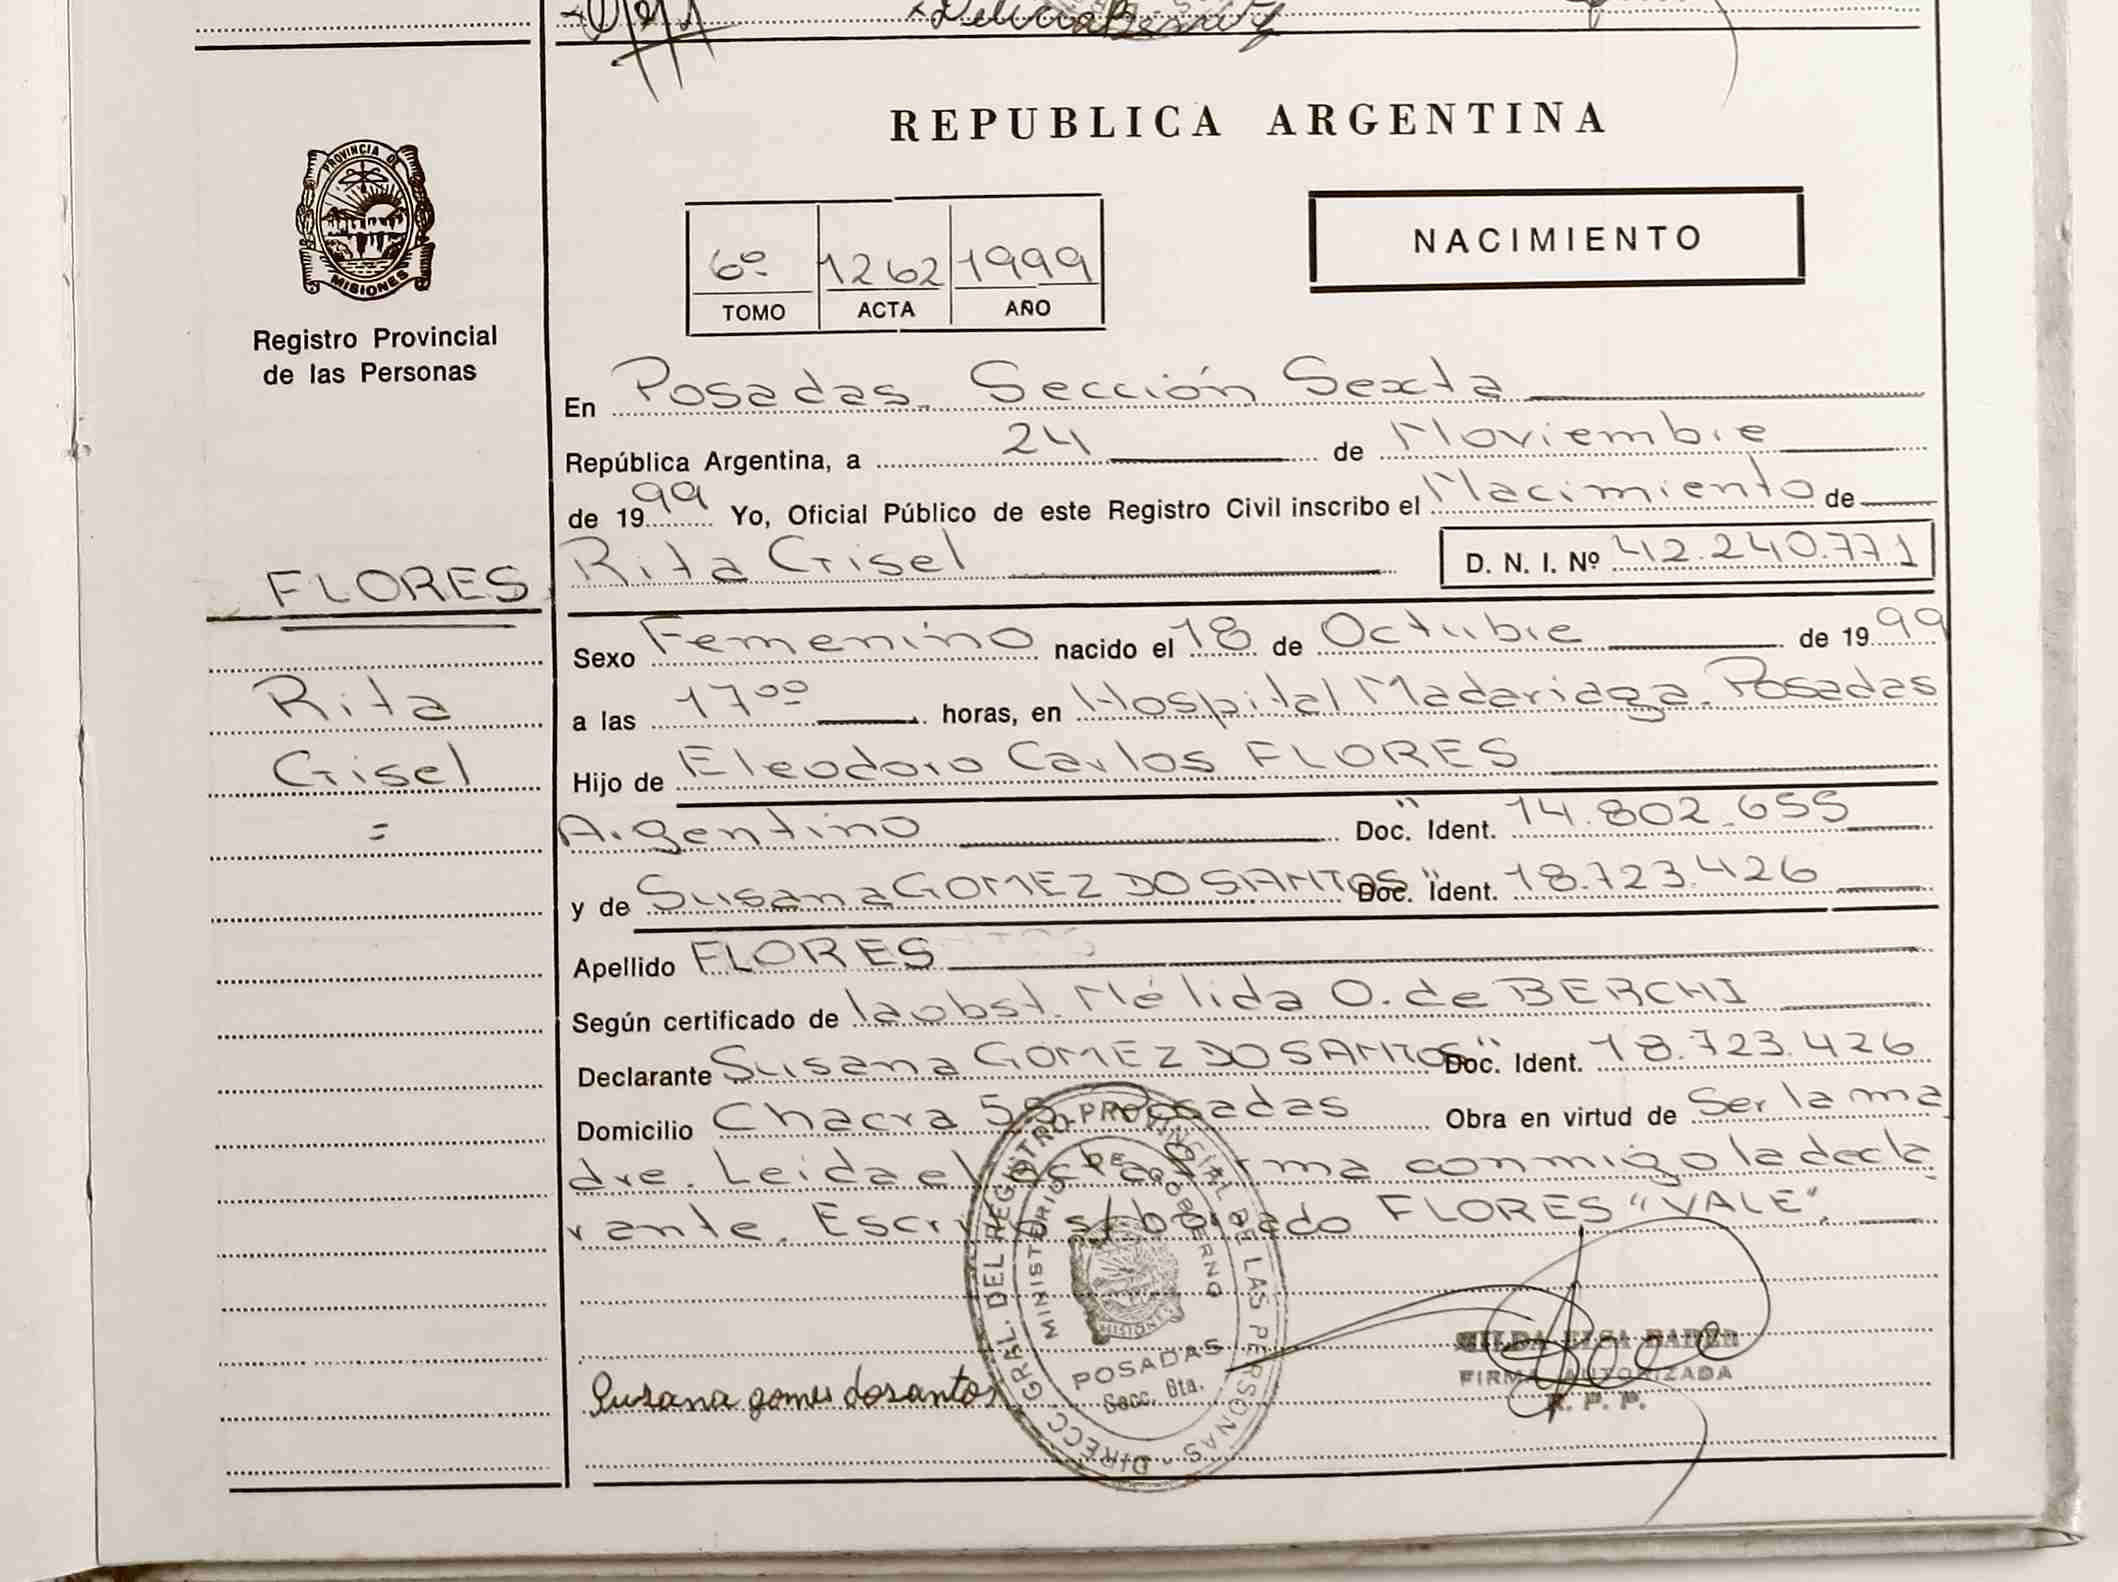 REPUBLICA ARGENTINA
PROVINCIA DE
MISIONES
Registro Provincial
de las Personas
NACIMIENTO
6º 1262 1999
TOMO ACTA AÑO
En Posadas. Sección Sexta
República Argentina, a 24 de Noviembre
de 1999 Yo, Oficial Público de este Registro Civil inscribo el Nacimiento de
Rita Gisel D. N. I. Nº 42.240.771
FLORES
Rita
Gisel
=
Sexo Femenino nacido el 18 de Octubre de 1999
a las 17ºº horas, en Hospital Madariaga. Posadas
Hijo de Eleodoro Carlos FLORES
Argentino Doc. Ident. " 14.802.655
y de Susana GOMEZ DO SANTOS Doc. Ident. " 18.723.426
Apellido FLORES
Según certificado de la obst. Nélida O. de BERCHI
Declarante Susana GOMEZ DO SANTOS Doc. Ident. " 18.723.426
Domicilio Chacra Posadas Obra en virtud de Ser la ma
dre. Leida el acta firma conmigo la decla
rante. Escrito s/ borrado FLORES "VALE".
DIRECC. GRAL. DEL REGISTRO PROVINCIAL DE LAS PERSONAS
MINISTERIO DE GOBIERNO
MISIONES
POSADAS
Secc. 6ta.
Susana gomes dosantos
ELSA
FIRMA AUTORIZADA
R. P. P.